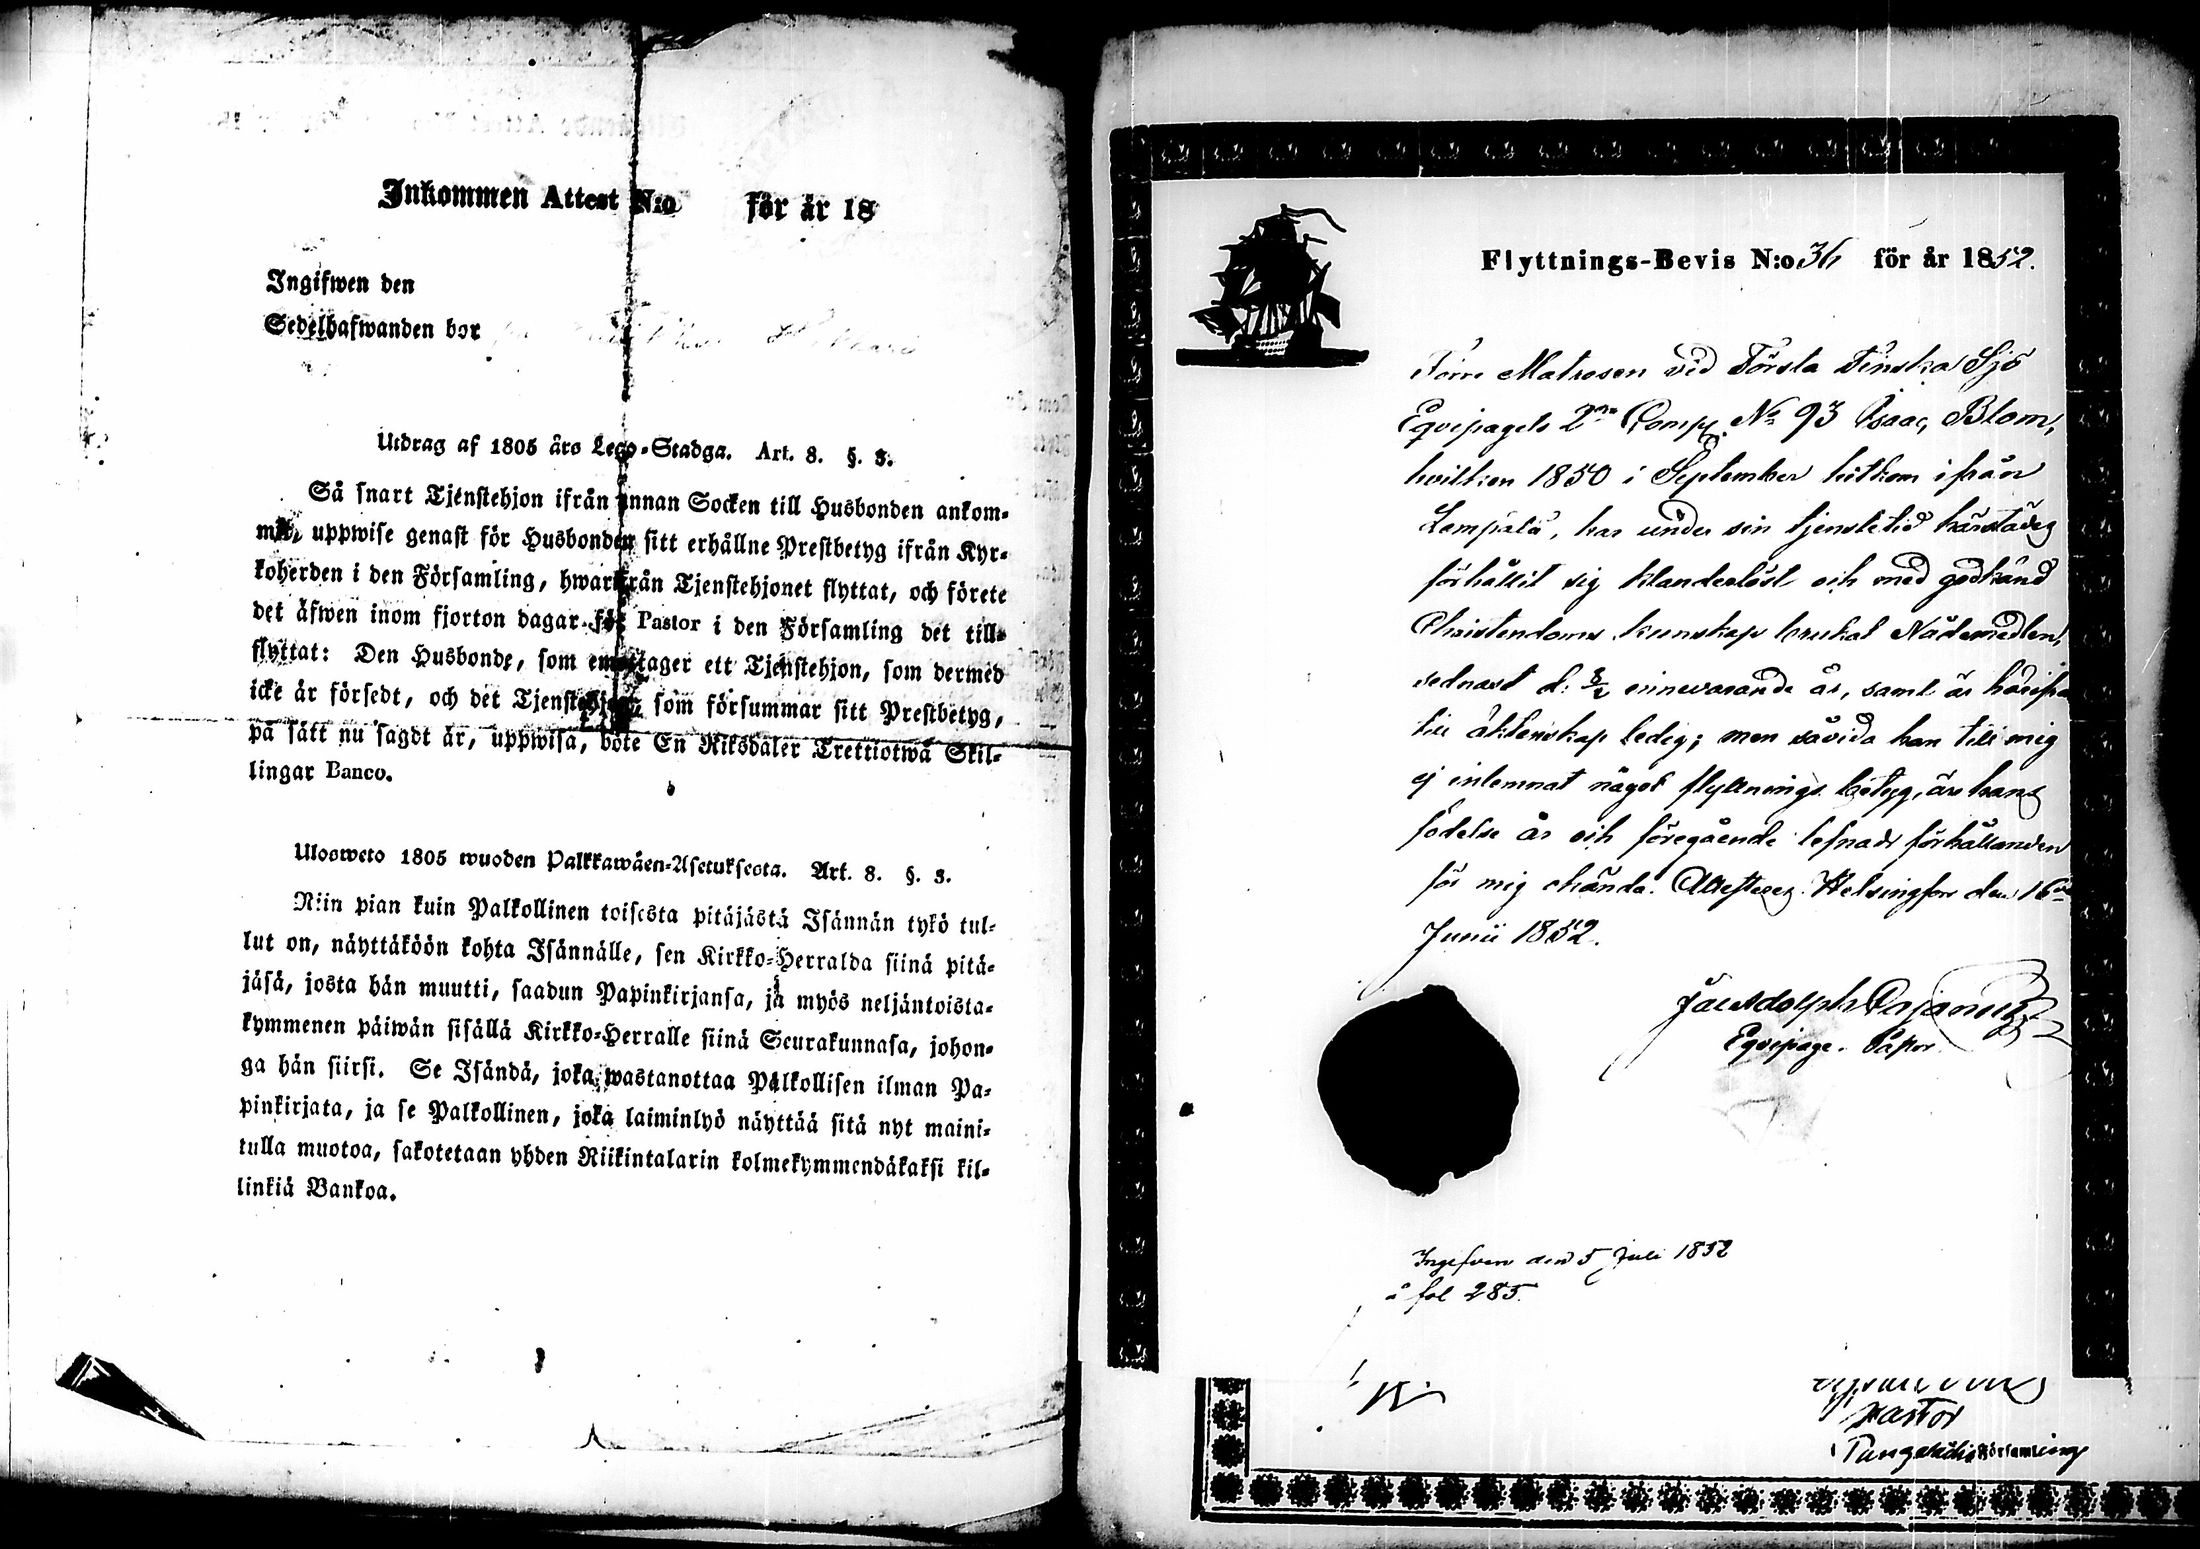 Inkommen Attest N:o för år 18
Ingifwen den
Sedelhafwanden bor
Utdrag af 1805 års Lego-Stadga. Art. 8. §. 3.
Så snart Tjenstehjon ifrån annan Socken till Husbonden ankom-
mit, uppwise genast för Husbonden sitt erhållne Prestbetyg ifrån Kyr-
koherden i den Församling, hwarifrån Tjenstehjonet flyttat, och förete
det äfwen inom fjorton dagar för Pastor i den Församling det till-
flyttat: Den Husbonde, som emottager ett Tjenstehjon, som dermed
icke är försedt, och det Tjenstehjon, som försummar sitt Prestbetyg,
på sätt nu sagdt är, uppwisa, böte En Riksdaler Trettiotwå Skil-
lingar Banco.
Ulosweto 1805 wuoden Palkkawäen-Asetuksesta. Art. 8. §. 3.
Niin pian kuin Palkollinen toisesta pitäjästä Isännän tykö tul-
lut on, näyttäköön kohta Isännälle, sen Kirkko-Herralda siinä pitä-
jäsä, josta hän muutti, saadun Papinkirjansa, ja myös neljäntoista-
kymmenen päiwän sisällä Kirkko-Herralle siinä Seurakunnasa, johon-
ga hän siirsi. Se Isändä, joka wastanottaa Palkollisen ilman Pa-
pinkirjata, ja se Palkollinen, joka laiminlyö näyttää sitä nyt maini-
tulla muotoa, sakotetaan yhden Riikintalarin kolmekymmendäkaksi kil-
linkiä Bankoa.
Flyttnings-Bevis N:o 36 för år 1852.
Förre Matrosen vid Första Finska Sjö
Eqvipagets 2dra Comp. No 93 Isaac Blom,
hvilken 1850 i September hitkom ifrån
Lempälä, har under sin tjenstetid härstädes
förhållit sig klanderlöst och med godkänd
Christendoms kunskap brukat Nådemedlen,
sednast d. 8/2 innevarande år, samt är härifrån
till äktenskap ledig; men såvida han till mig
ej inlemnat något flyttnings betyg, äro hans
födelse år och föregående lefnads förhållanden
för mig okända. Attesterar. Helsingfors den 16de
Junii 1852.
Eqvipage-Pastor
Ingifven den 5 Juli 1852
å fol 285.
Pastor
i Pungalaitio Församling